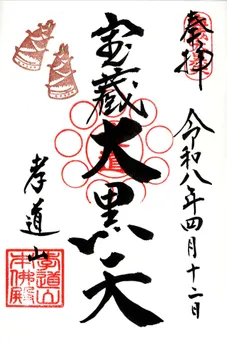 奉拝
令和八年四月十二日
宝蔵大黒天
孝道山
孝道山
本仏殿